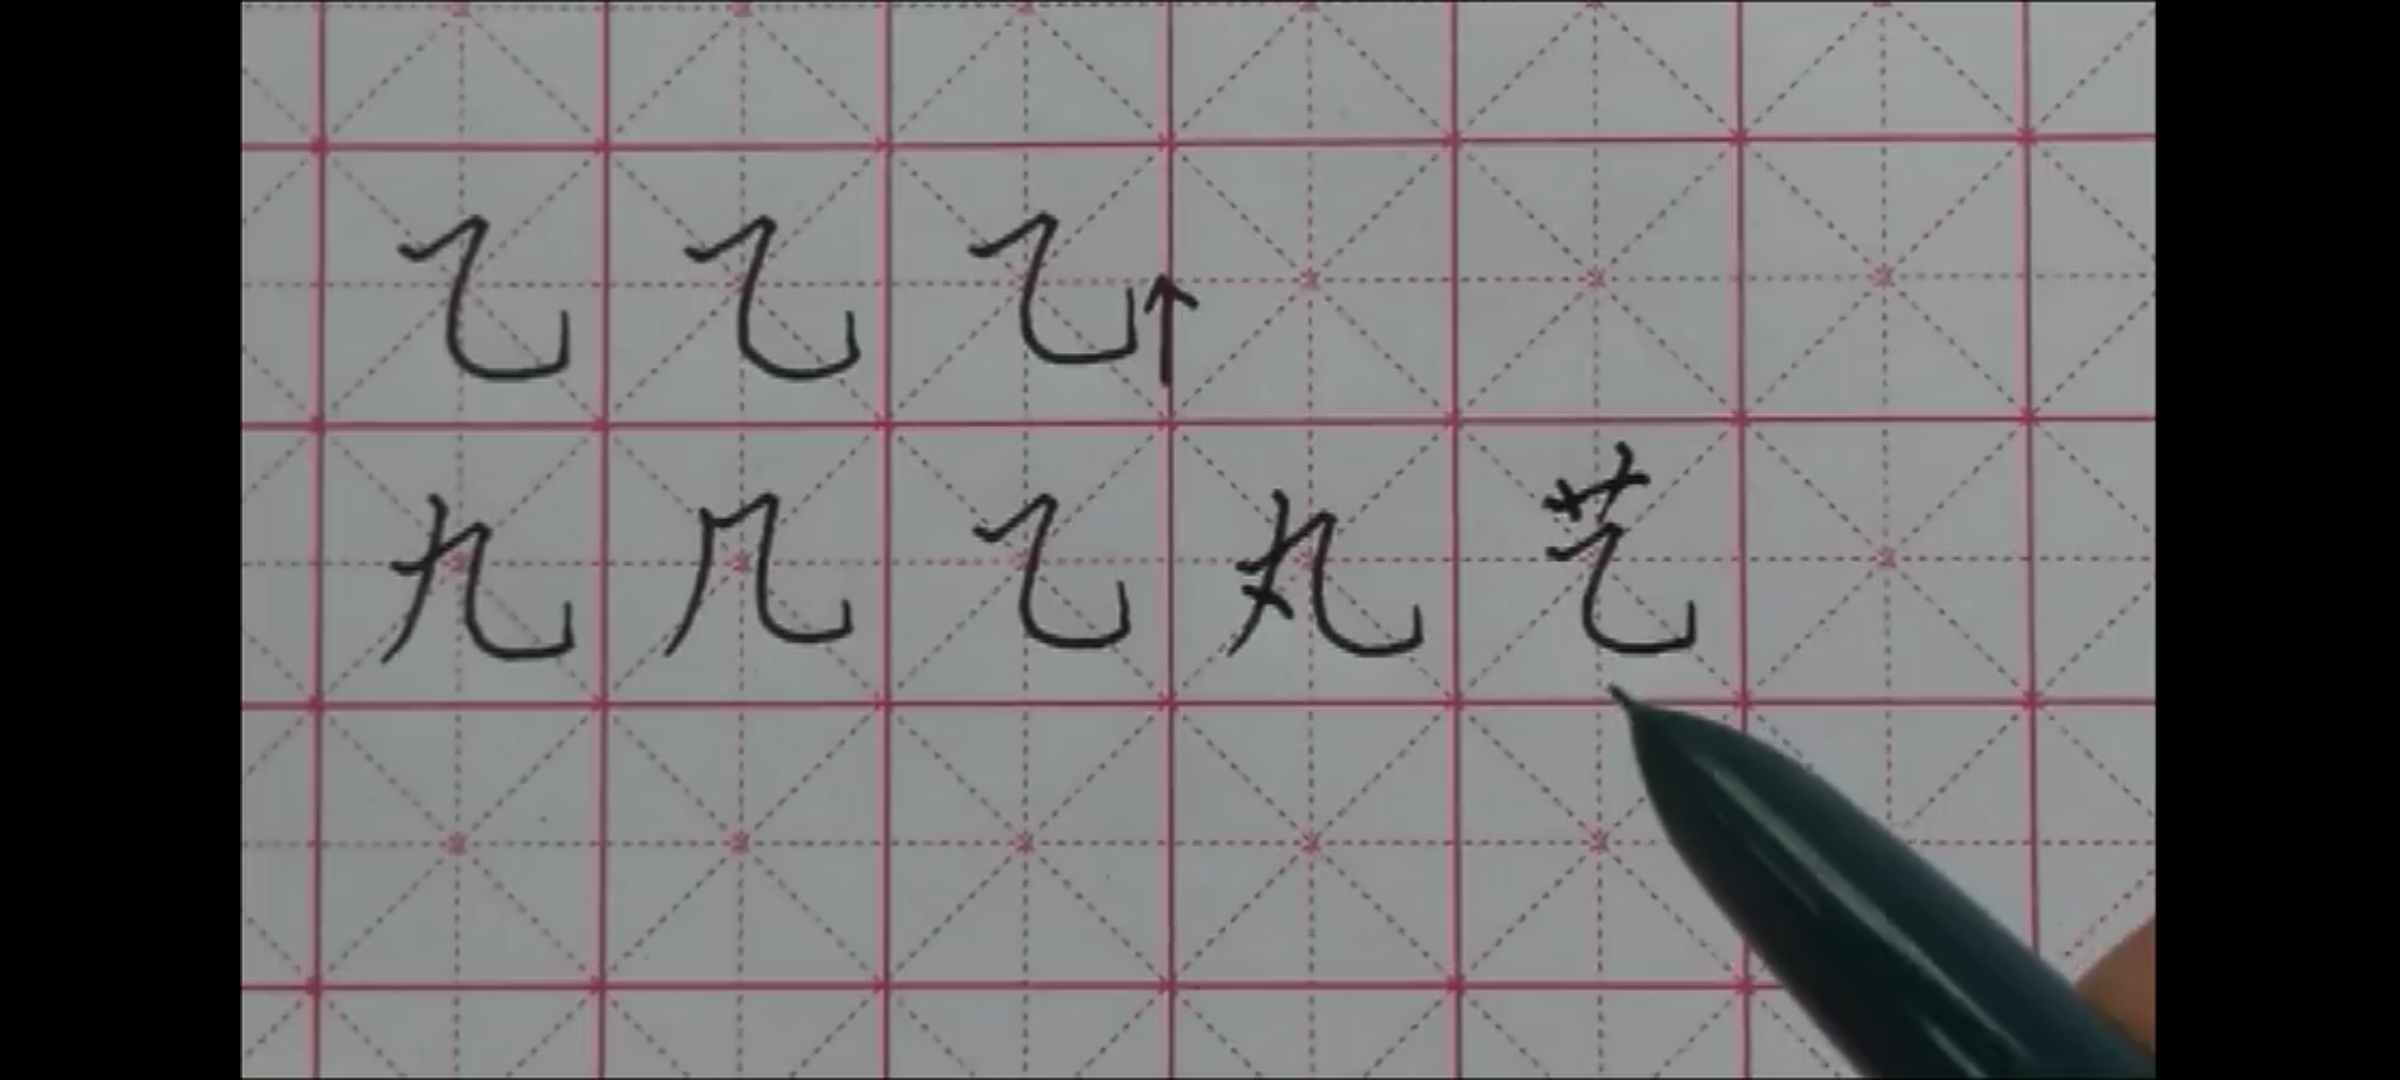 乙乙乙↑
九几乙丸艺